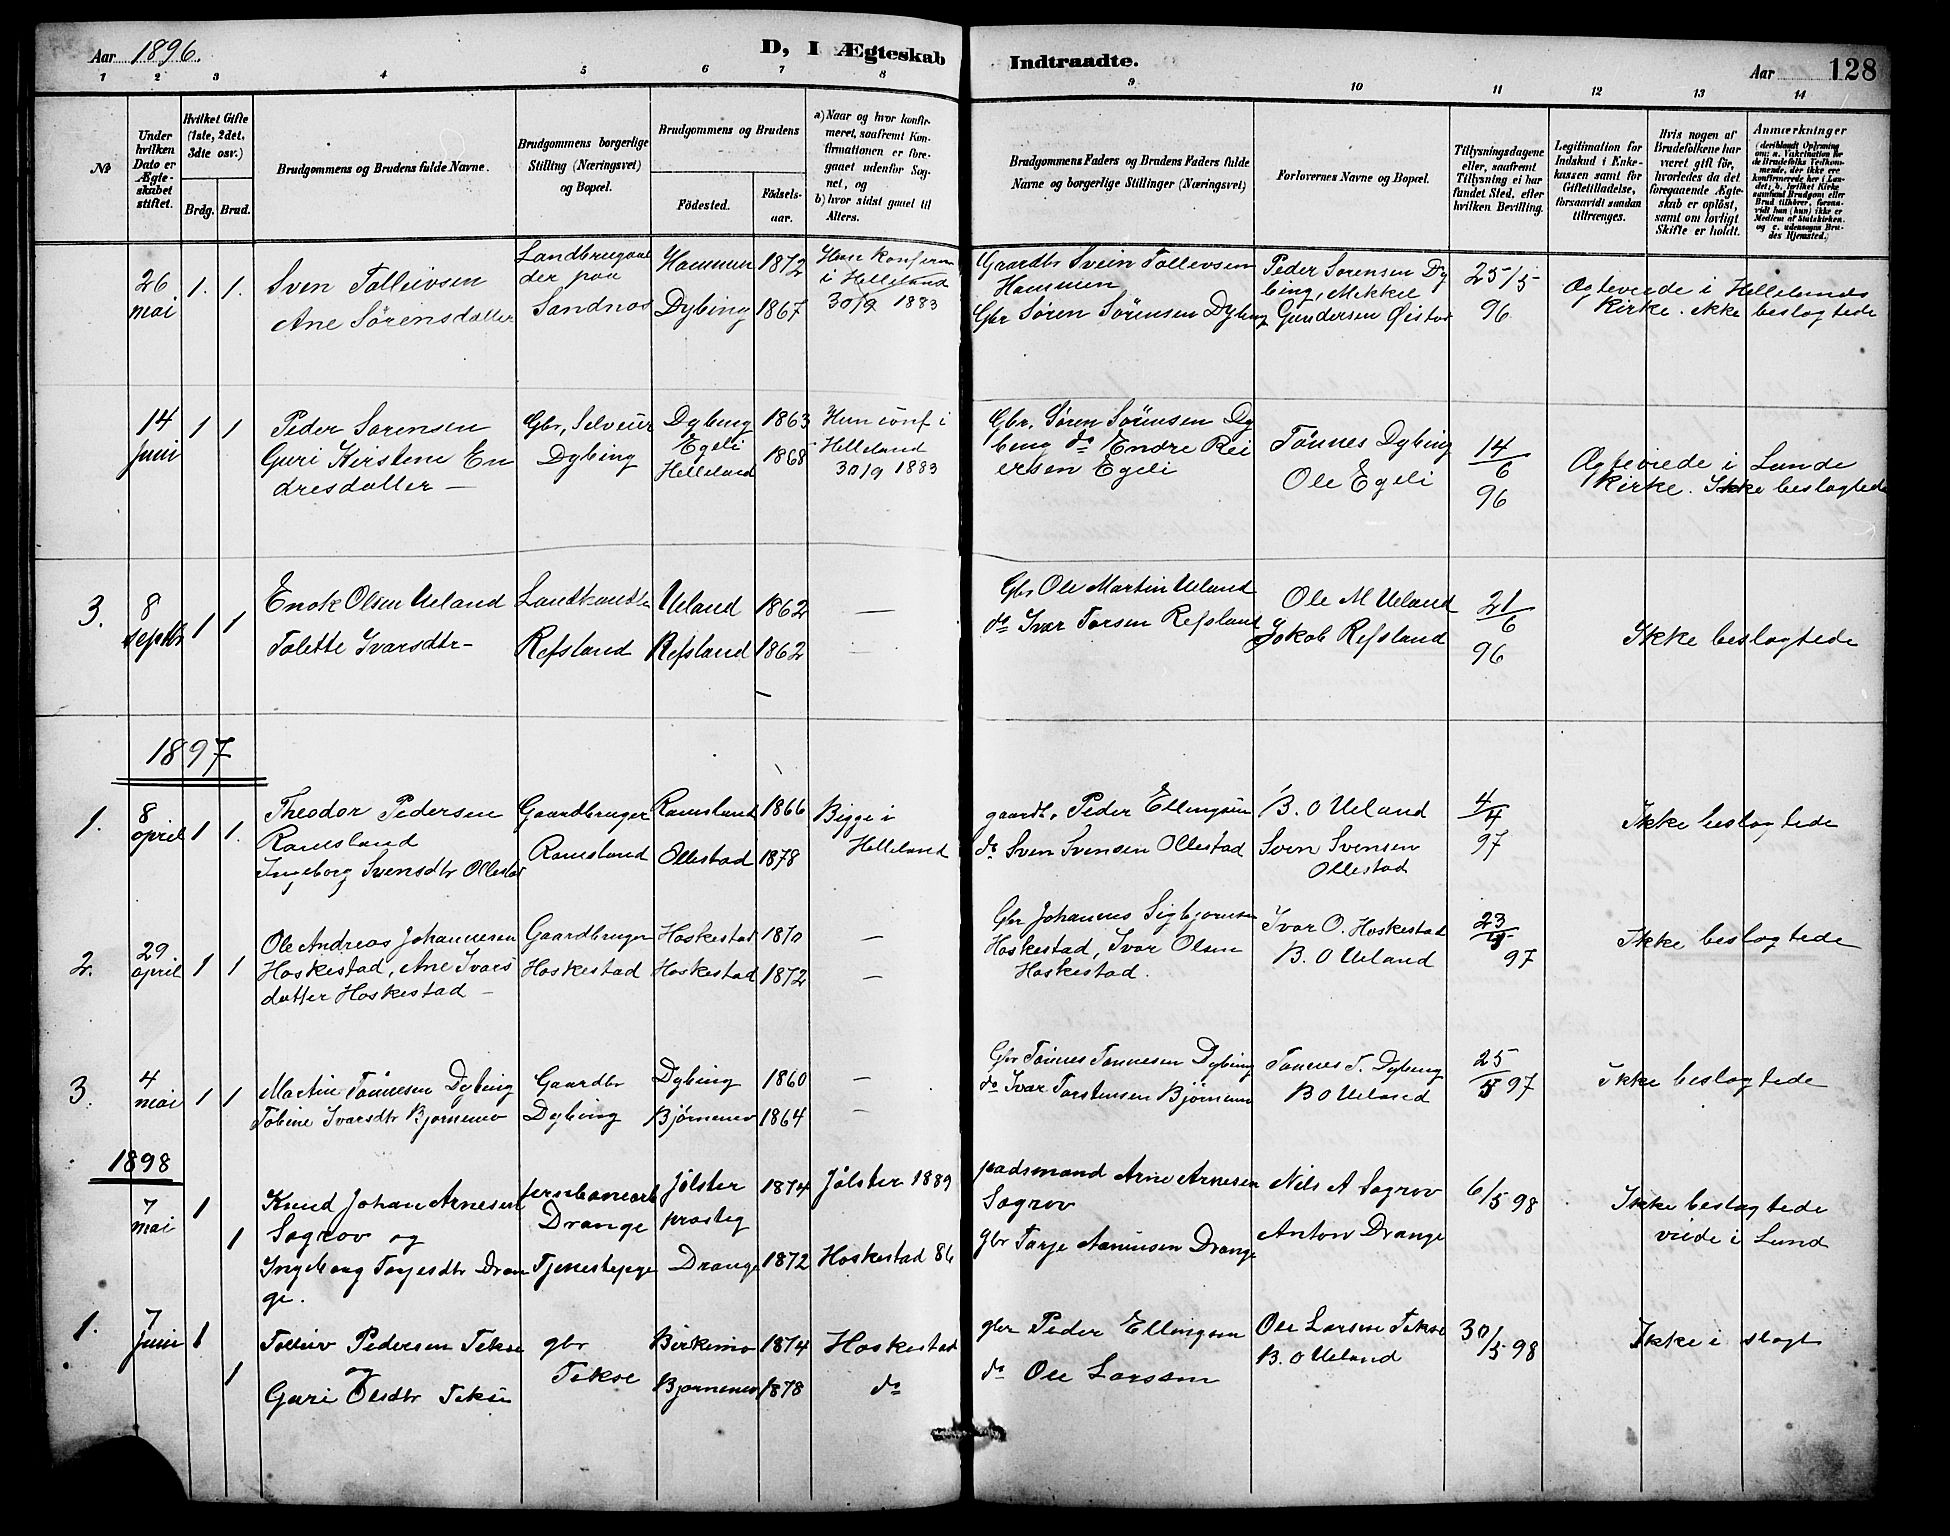 Aar 1896.
D, I Ægteskab Indtraadte.
Aar 128
1 2 3 4 5 6 7 8 9 10 11 12 13 14
№
Under hvilken Dato er Ægteskabet stiftet.
Hvilket Gifte (1ste, 2det, 3dte osv.)
Brdg. Brud.
Brudgommens og Brudens fulde Navne.
Brudgommens borgerlige Stilling (Næringsvei) og Bopæl.
Brudgommens og Brudens
Fødested. Fødsels-aar.
a) Naar og hvor konfirmeret, saafremt Konfirmationen er foregaaet udenfor Sognet, og
b) hvor sidst gaaet til Alters.
Brudgommens Faders og Brudens Faders fulde Navne og borgerlige Stillinger (Næringsvei)
Forlovernes Navne og Bopæl.
Tillysningsdagene eller, saafremt Tillysning ei har fundet Sted, efter hvilken Bevilling.
Legitimation for Indskud i Enkekassen samt for Giftetilladelse, forsaavidt saadan tiltrænges.
Hvis nogen af Brudefolkene har været gift før, hvorledes da det foregaaende Ægteskab er opløst, samt om lovligt Skifte er holdt.
Anmærkninger
26 mai 1. 1.
Sven Tolleivsen
Ane Sørensdatter
Sandnes
Hammen 1872
Dybing 1867
Han konferm
i Helleland
30/9 1883
Gaardbr Svein Tollevsen
Hammen
Gbr Søren Sørensen Dybing
Peder Sørensen Dy
bing, Mikkel
Gundersen
25/5 96
Ægteviede i Hellelands
Kirke. ikke beslagtede
14 Juni 1 1
Peder Sørensen
Guri Kirstine En
dresdatter —
Gbr, Selveier
Dybing
Dybing 1863
Egeli
Helleland 1868
Hun conf i
Helleland
30/9 1883
Gbr. Søren Sørensen Dy
bing do Endre Rei
ersen Egeli
Tönnes Dybing
Ole Egeli
14/6 96
Ægteviede i Lunde
Kirke. Ikke beslagtede
3. 8 septbr 1 1
Enok Olsen Ueland
Tolette Ivarsdtr-
Refsland
Ueland 1862 —
Refsland 1862
Gbr Ole Martin Ueland
do Ivar Torsen Refsland
Ole M Ueland
Jakob Refsland
21/6 96
Ikke beslagtede
1897
1. 8 april 1 1.
Theodor Pedersen
Ramsland
Ingeborg Svensdtr Ollestad
Gaardbruger
Ramsland
Ramsland 1866
Ollestad 1878
Begge i
Helleland
gaardb, Peder Ellingsen
do Sven Svensen Ollestad
B. O Ueland
Sven Svensen
Ollestad
4/4 97
Ikke beslagtede
2. 29 april 1 1
Ole Andreas Johannesen
Hoskestad, Ane Ivars
datter Hoskestad —
Gaardbruger
Hoskestad
Hoskestad 1870 —
Hoskestad 1872 —
Gbr Johannes Sigbjørnsen
Hoskestad, Ivar Olsen
Hoskestad.
Ivar O. Hoskestad
B. O Ueland
23 97
Ikke beslagtede
3. 4 mai 1 1
Martin Tönnesen Dybing
Tobine Ivarsdtr Bjørnemo
Gaardbr
Dybing
Dybing 1860 —
Bjørnemo 1864 —
Gbr Tönnes Tønnesen Dybing
do Ivar Torstensen Bjørnemo
Tønnes T. Dybing
B O Ueland
25 97
Ikke beslagtede
1898
7 mai 1 1
Knud Johan Arnesen
Søgrov og
Ingeborg Tarjesdtr Dran
ge.
Jernbanearb
Drange
Tjenestepige
Jølster 1874
Drange 1872
Jölster 1889
Hoskestad 86
Arne Arnesen
Søgrov
gbr Tarje Aanensen Drange
Nils A Søgrov
Anton Drange
6/5 98
Ikke beslagtede
viede i Lund
1. 7 Juni 1 1
Tolleiv Pedersen Tekse
og
Guri Olsdtr Tekse
gbr
Tekse
Birkemo 1874
Bjørnemo 1878
Hoskestad
do
gbr Peder Ellingsen
do Ole Larsen
Ole Larsen Tekse
B. O Ueland
30/5 98
Ikke i slægt